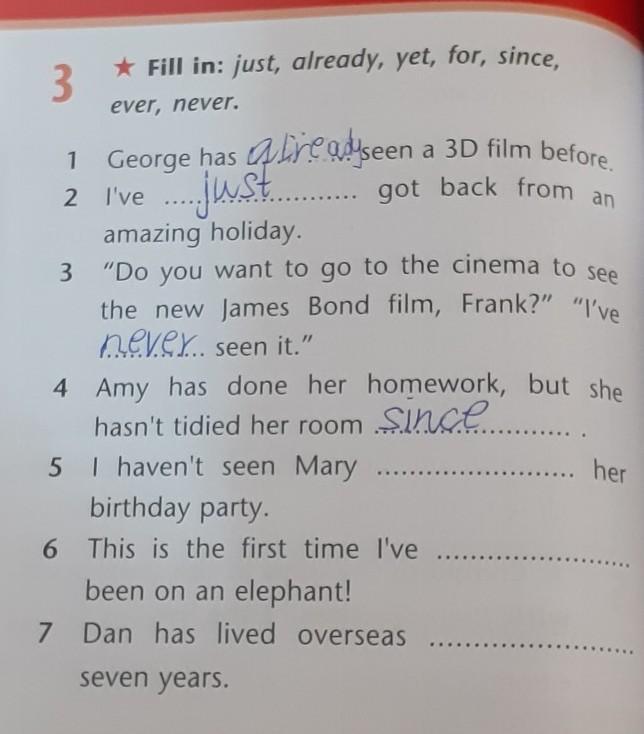 3 ★ Fill in: just, already, yet, for, since,
ever, never.
1 George has already seen a 3D film before.
2 I've .....just............. got back from an
amazing holiday.
3 "Do you want to go to the cinema to see
the new James Bond film, Frank?" "I've
never.. seen it."
4 Amy has done her homework, but she
hasn't tidied her room since............ .
5 I haven't seen Mary .......................... her
birthday party.
6 This is the first time I've ..........................
been on an elephant!
7 Dan has lived overseas ..........................
seven years.